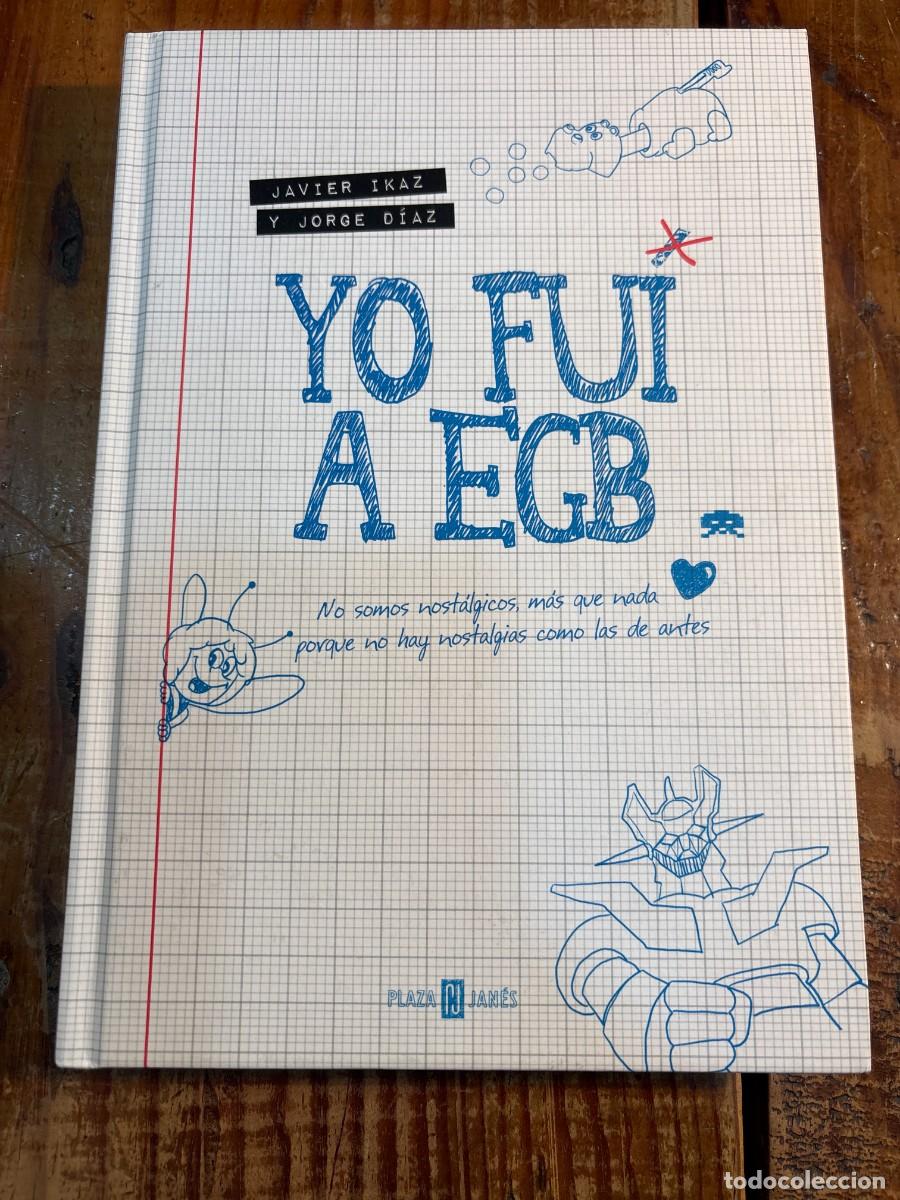 JAVIER IKAZ
Y JORGE DÍAZ
YO FUI
A EGB
No somos nostálgicos, más que nada
porque no hay nostalgias como las de antes
PLAZA PJ JANÉS
todocoleccion